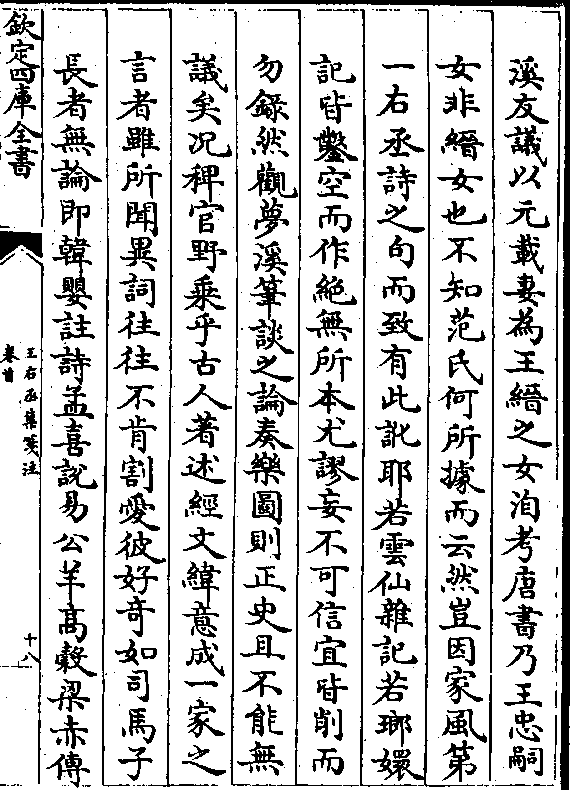 溪友議以元載妻為王縉之女洵考唐書乃王忠嗣
女非縉女也不知范氏何所據而云然豈因家風第
一右丞詩之句而致有此訛耶若雲仙雜記若瑯嬛
記皆鑿空而作絶無所本尤謬妄不可信宜皆削而
勿録然觀夢溪筆談之論奏樂圖則正史且不能無
議矣况稗官野乘乎古人著述經文緯意成一家之
言者雖所聞異詞往往不肯割愛彼好竒如司馬子
長者無論即韓嬰註詩孟喜説易公羊髙穀梁赤傳
欽定四庫全書
王右丞集箋注
卷首
十八